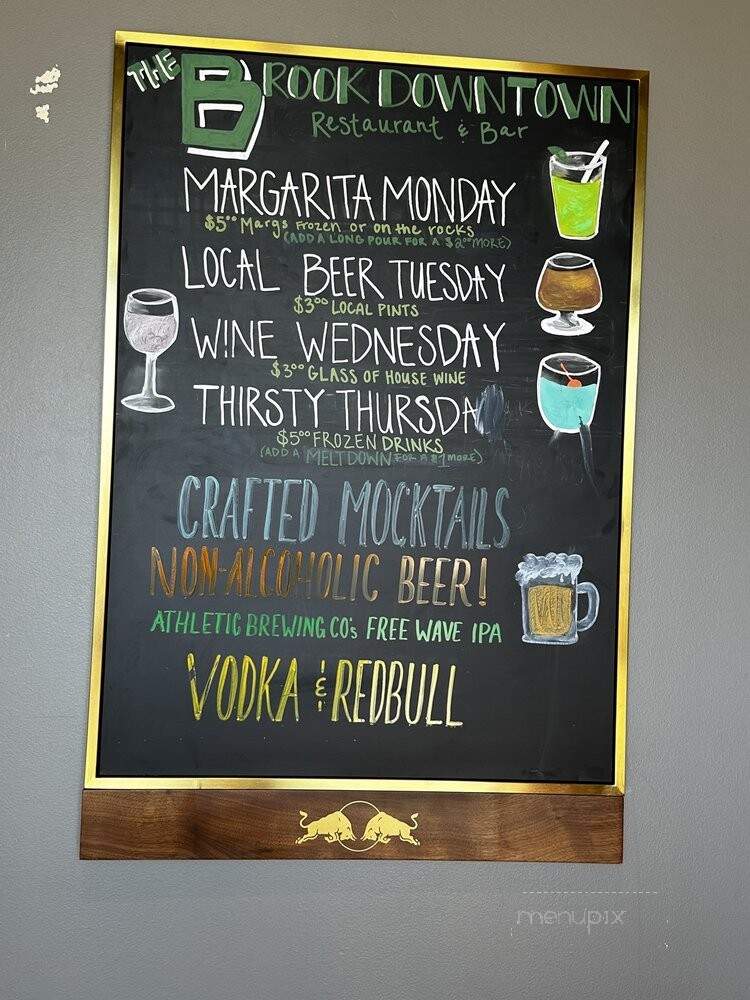 THE BROOK DOWNTOWN
Restaurant & Bar
MARGARITA MONDAY
$5⁰⁰ Margs Frozen or on the rocks
(ADD A LONG POUR FOR A $2⁰⁰ MORE)
LOCAL BEER TUESDAY
$3⁰⁰ LOCAL PINTS
W!NE WEDNESDAY
$3⁰⁰ GLASS OF HOUSE WINE
THIRSTY THURSDA
$5⁰⁰ FROZEN DRINKS
(ADD A MELTDOWN FOR A $1 MORE)
CRAFTED MOCKTAILS
NON-ALCOHOLIC BEER!
ATHLETIC BREWING CO's FREE WAVE IPA
VODKA & REDBULL
menupix